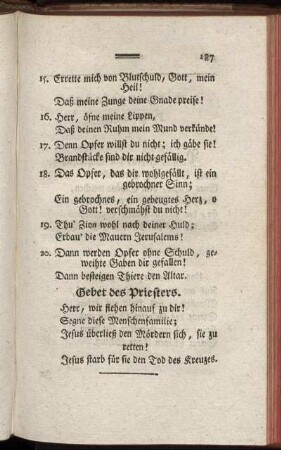 187
15. Errette mich von Blutschuld, Gott, mein
Heil!
Daß meine Zunge deine Gnade preise!
16. Herr, öfne meine Lippen,
Daß deinen Ruhm mein Mund verkünde!
17. Denn Opfer willst du nicht; ich gäbe sie!
Brandstücke sind dir nicht gefällig.
18. Das Opfer, das dir wohlgefällt, ist ein
gebrochner Sinn;
Ein gebrochnes, ein gebeugtes Hertz, o
Gott! verschmähst du nicht!
19. Thu' Zion wohl nach deiner Huld;
Erbau' die Mauern Jerusalems!
20. Dann werden Opfer ohne Schuld, ge-
weihte Gaben dir gefallen!
Dann besteigen Thiere den Altar.
Gebet des Priesters.
Herr, wir flehen hinauf zu dir!
Segne diese Menschenfamilie;
Jesus überließ den Mördern sich, sie zu
retten!
Jesus starb für sie den Tod des Kreuzes.